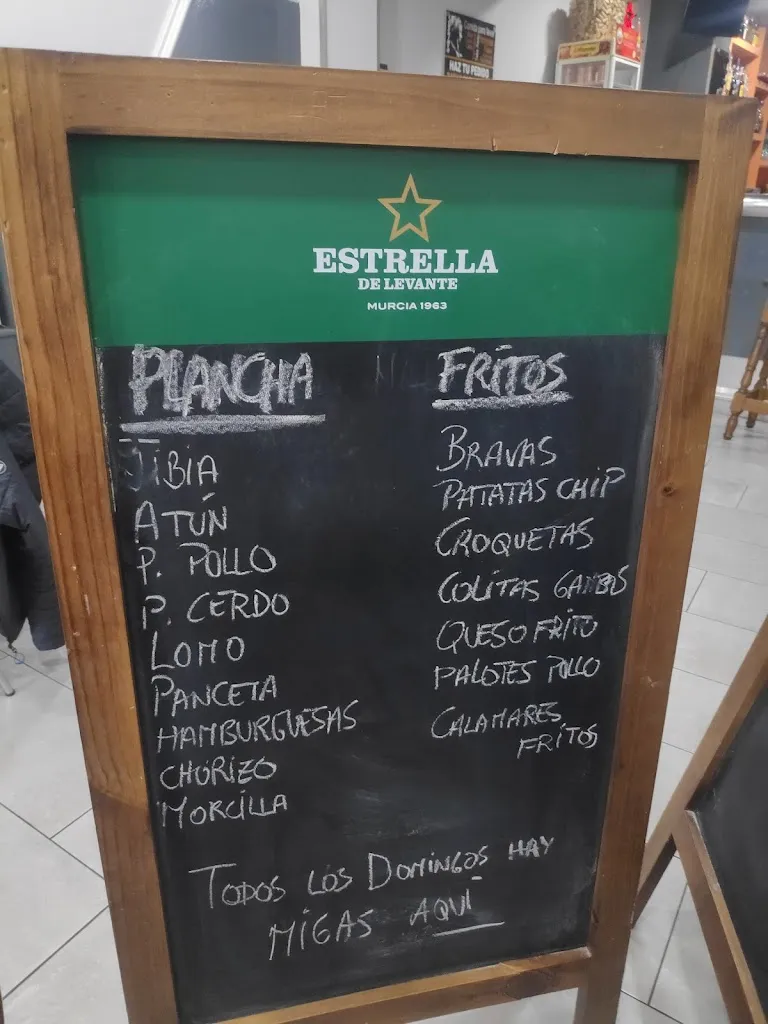 HAZ TU PEDIDO
ESTRELLA
DE LEVANTE
MURCIA 1963
PLANCHA
JIBIA
ATÚN
P. POLLO
P. CERDO
LOMO
PANCETA
HAMBURGUESAS
CHORIZO
MORCILLA
FRITOS
BRAVAS
PATATAS CHIP
CROQUETAS
COLITAS GAMBAS
QUESO FRITO
PALOTES POLLO
CALAMARES
FRITOS
TODOS LOS DOMINGOS HAY
MIGAS AQUÍ